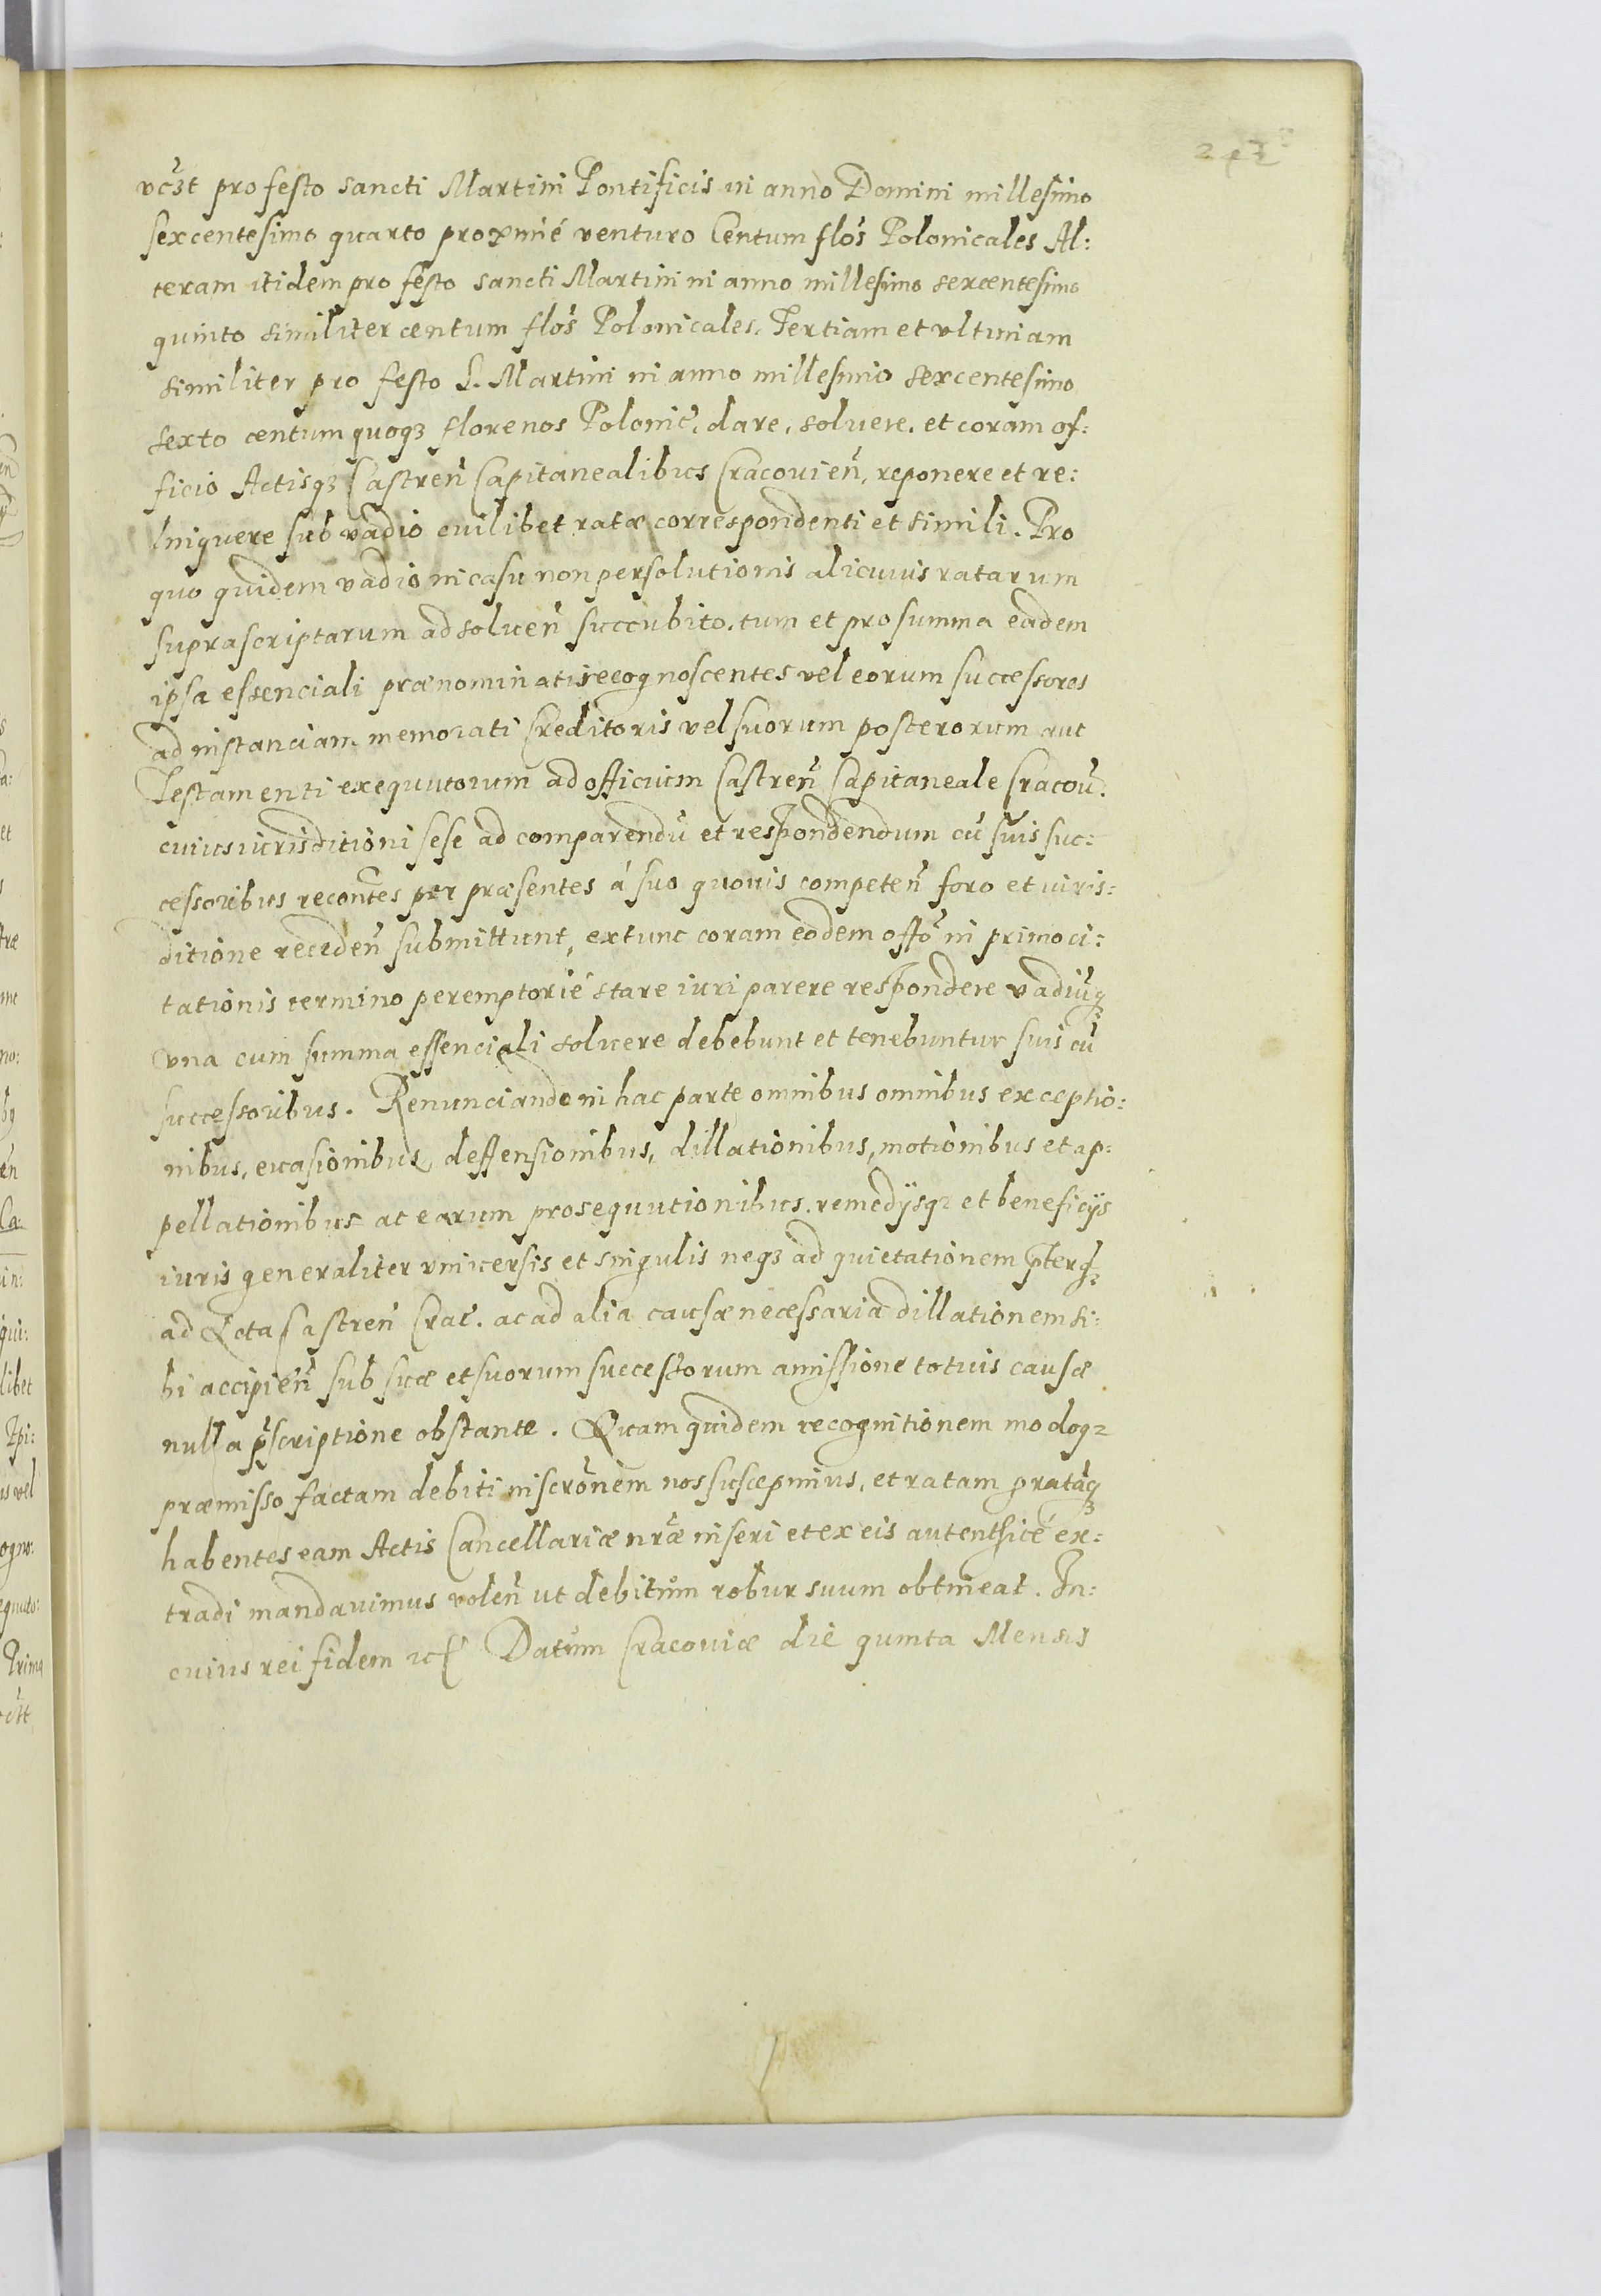 vcꝫt pro festo sancti Martini Pontificis in anno Domini millesimo
sexcentesimo quarto proximé venturo Centum flōs Polonicales Al:
teram itidem pro festo sancti Martini in anno millesimo sexcentesimo
quinto similiter centum flōs Polonicales. Tertiam et vltimam
similiter pro festo S. Martini in anno millesimo sexcentesimo
sexto centum quoqꝫ florenos Polonic̃, dare, soluere, et coram of:
ficio Actisqꝫ Castreñ Capitanealibus Cracouieñ, reponere et re:
linquere sub vadio cuilibet ratæ correspondenti et simili. Pro
quo quidem vadio in casu non persolutionis alicuius ratarum
suprascriptarum ad solueñ succubito. tum et pro summa eadem
ipsa essenciali prænominati recognoscentes vel eorum successores
ad instanciam memorati Creditoris vel suorum posterorum aut
Testamenti exequutorum ad officium Castreñ Capitaneale Cracoũ.
cuius iurisditioni sese ad comparendũ et respondendum cũ suis suc:
cessoribus recontes per præsentes á suo quouis competeñ foro et iuris:
ditione recedeñ submittunt, extunc coram eodem offõ in primo ci:
tationis termino peremptorié stare iuri parere respondere vadiũqꝫ
vna cum summa essenciali soluere debebunt et tenebuntur suis cũ
successoribus. Renunciando in hac parte omnibus omnibus exceptio:
nibus, euasionibus, deffensionibus, dillationibus, motionibus et ap:
pellationibus ac earum prosequutionibus. remedijsqꝫ et beneficijs
iuris generaliter vniuersis et singulis neqꝫ ad quietationem p̃terqꝫ
ad Lota Castreñ Crac̃. ac ad alia causæ necessaria dillationem si:
bi accipieñ sub suæ et suorum successorum amissione totius causæ
nulla p̃scriptione obstante. Quam quidem recognitionem modoqꝫ
præmisso factam debiti inscrõnem nos suscepimus, et ratam gratãqꝫ
habentes eam Actis Cancellariæ nr̃æ inseri et ex eis autenthicé ex:
tradi mandauimus voleñ ut debitum robur suum obtineat. In:
cuius rei fidem ꝛc Datum Cracouiæ die quinta Mensis